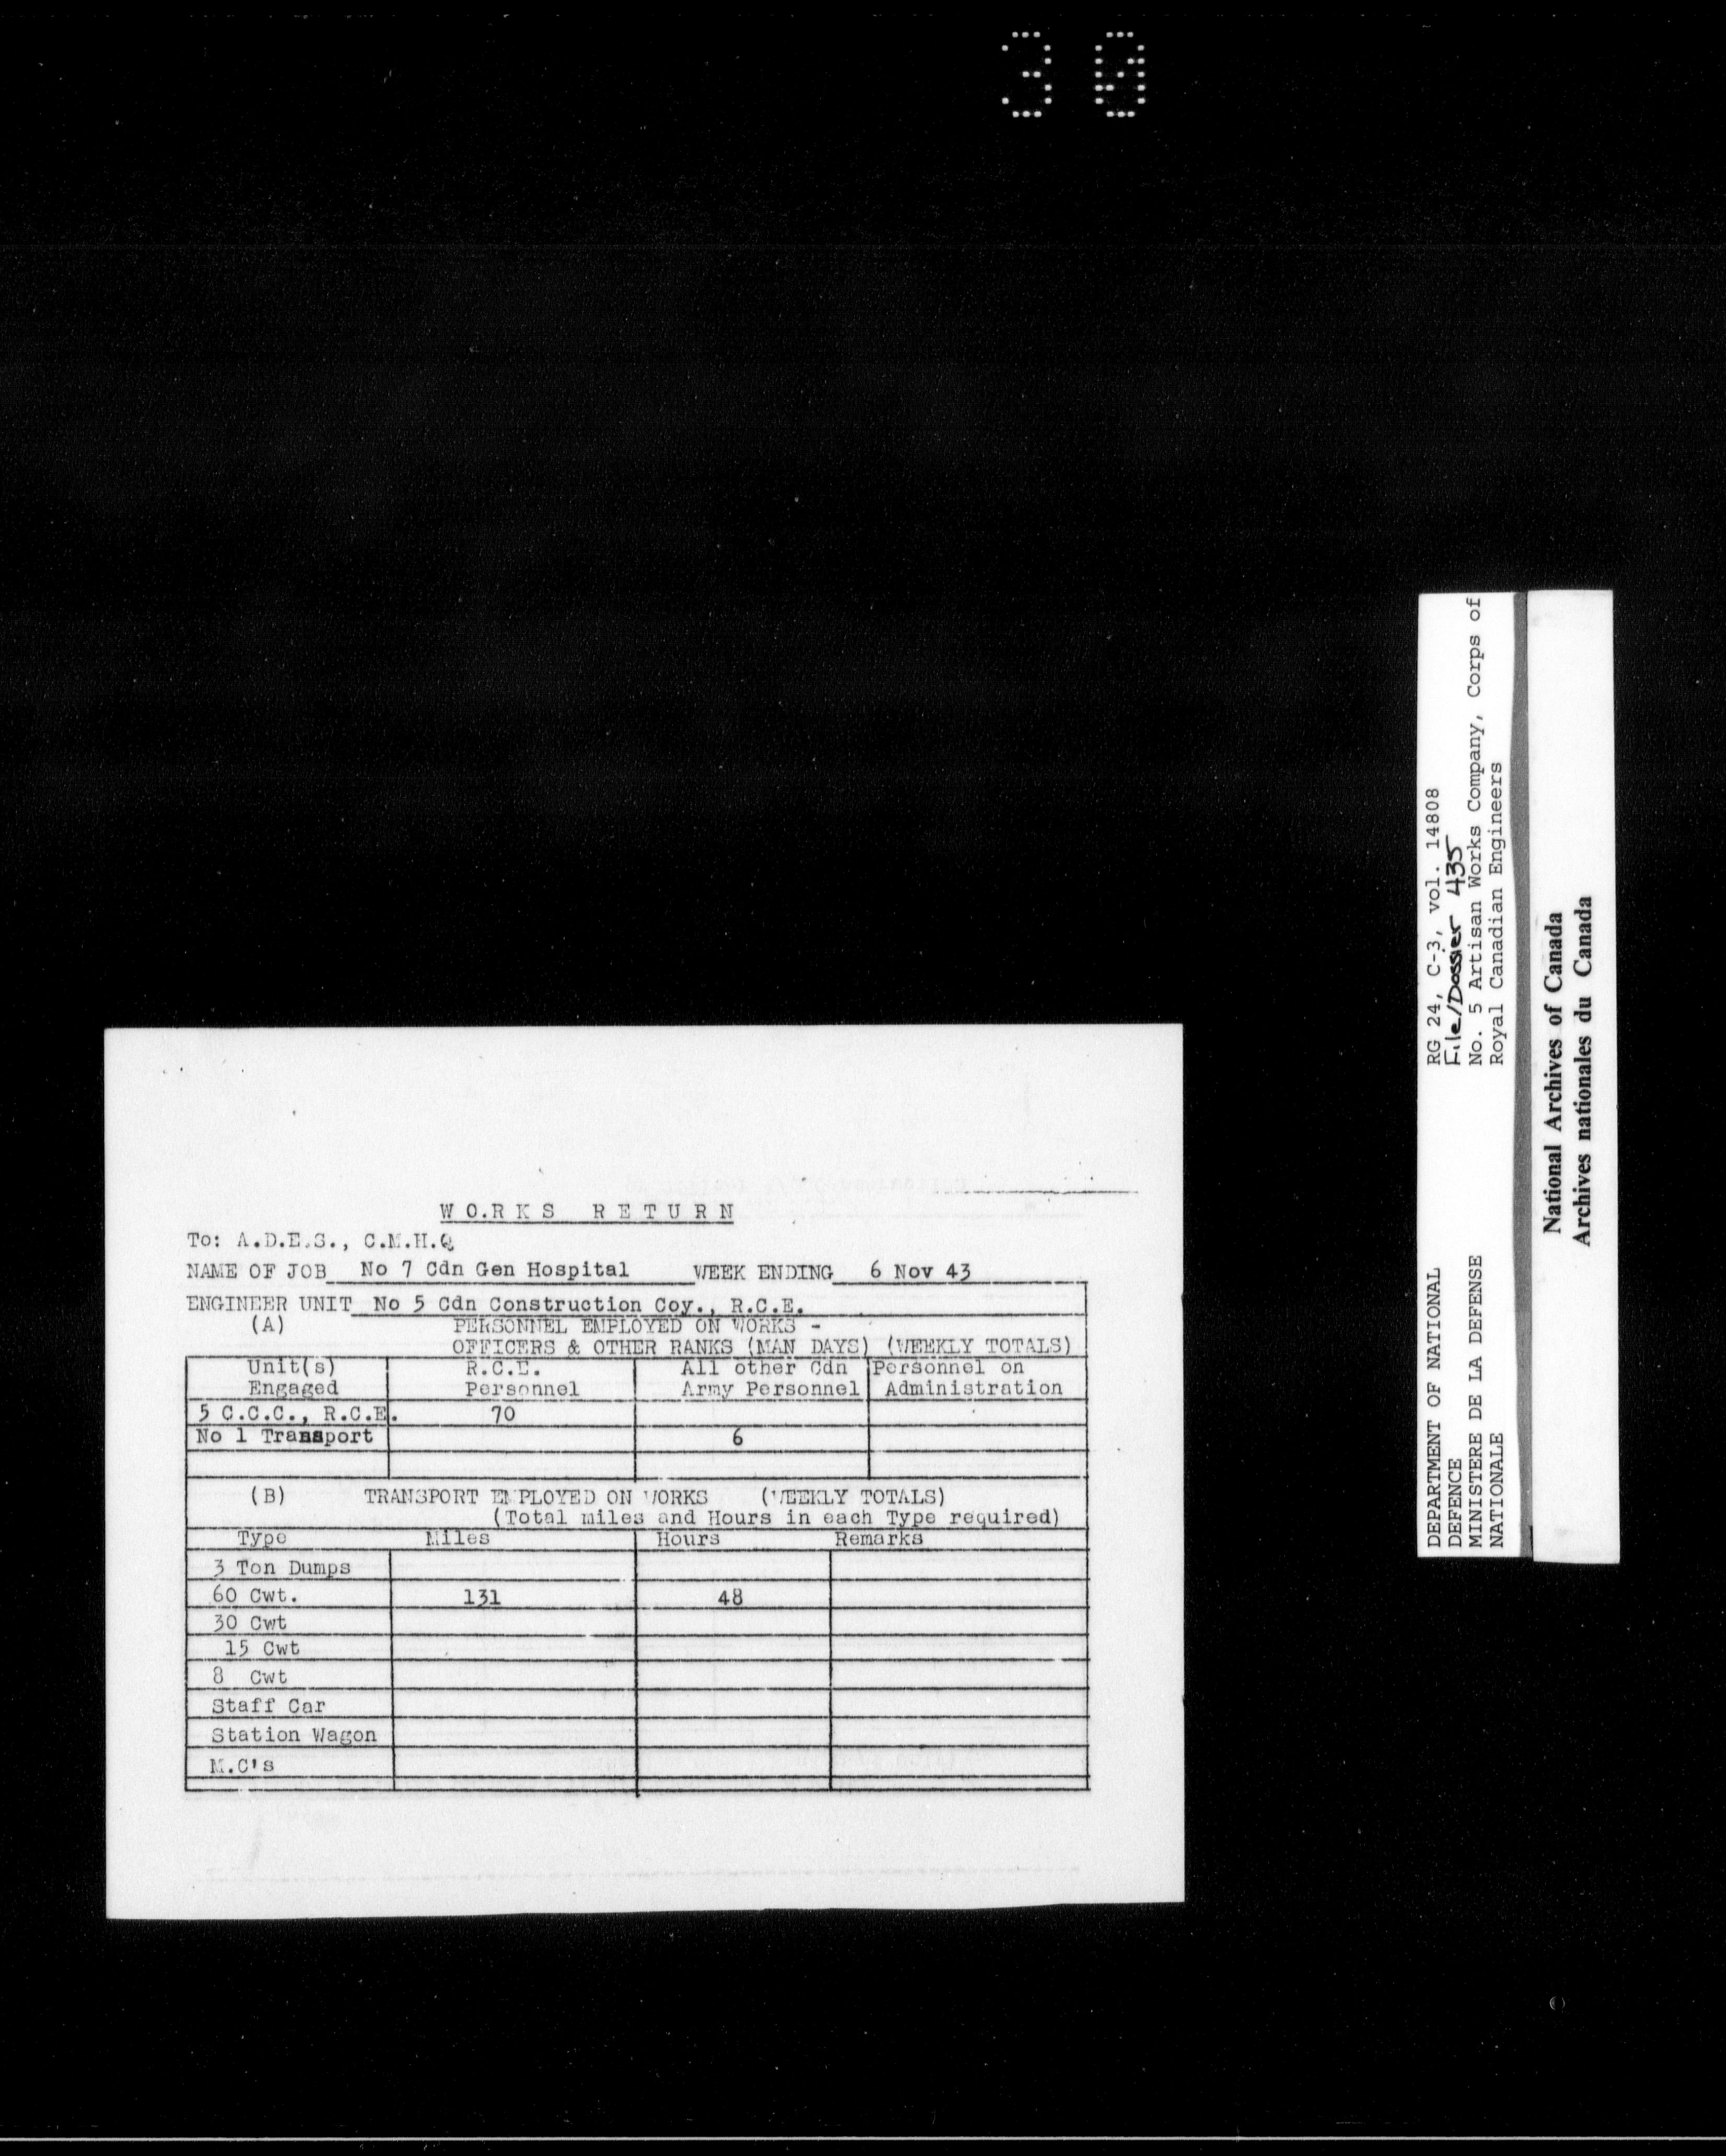 30
W O.R K S R E T U R N
To: A.D.E.S., C.M.H.Q
NAME OF JOB No 7 Cdn Gen Hospital WEEK ENDING 6 Nov 43
ENGINEER UNIT No 5 Cdn Construction Coy., R.C.E.
(A) PERSONNEL EMPLOYED ON WORKS -
OFFICERS & OTHER RANKS (MAN DAYS) (WEEKLY TOTALS)
Unit(s) R.C.E. All other Cdn Personnel on
Engaged Personnel Army Personnel Administration
5 C.C.C., R.C.E. 70
No 1 Transport 6
(B) TRANSPORT EMPLOYED ON WORKS (WEEKLY TOTALS)
(Total miles and Hours in each Type required)
Type Miles Hours Remarks
3 Ton Dumps
60 Cwt. 131 48
30 Cwt
15 Cwt
8 Cwt
Staff Car
Station Wagon
M.C's
DEPARTMENT OF NATIONAL RG 24, C-3, vol. 14808
DEFENCE File/Dossier 435
MINISTERE DE LA DEFENSE No. 5 Artisan Works Company, Corps of
NATIONALE Royal Canadian Engineers
National Archives of Canada
Archives nationales du Canada